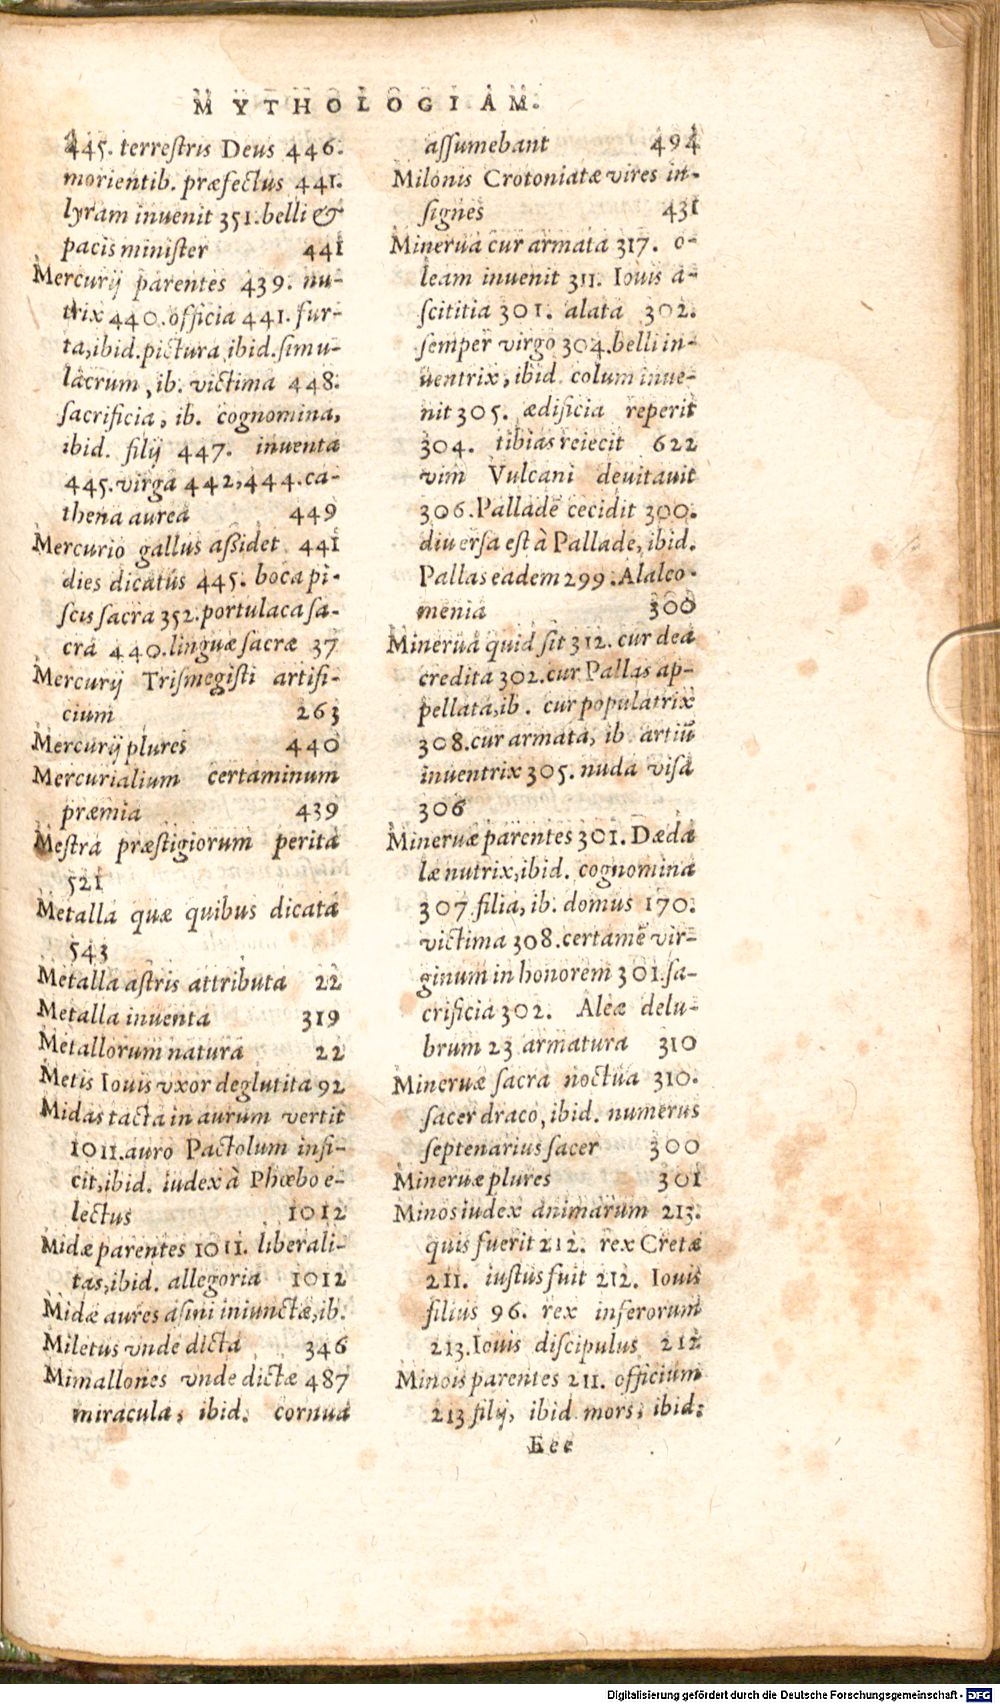 MYTHOLOGIAM.
445. terreſtris Deus 446.
morientib. præfectus 441.
lyram inuenit 351. belli &
pacis miniſter 441
Mercurij parentes 439. nu-
trix 440. officia 441. fur-
ta, ibid. pictura ibid. ſimu-
lacrum, ib. victima 448.
ſacrificia, ib. cognomina,
ibid. filij 447. inuenta
445. virga 442, 444. ca-
thena aurea 449
Mercurio gallus aſsidet 441
dies dicatus 445. boca pi-
ſcis ſacra 352. portulaca ſa-
cra 440. linguæ ſacræ 37
Mercurij Triſmegiſti artifi-
cium 263
Mercurij plures 440
Mercurialium certaminum
præmia 439
Meſtra præſtigiorum perita
521
Metalla quæ quibus dicata
543
Metalla aſtris attributa 22
Metalla inuenta 319
Metallorum natura 22
Metis Iouis vxor deglutita 92
Midas tacta in aurum vertit
1011. auro Pactolum infi-
cit, ibid. iudex à Phœbo e-
lectus 1012
Midæ parentes 1011. liberali-
tas, ibid. allegoria 1012
Midæ aures aſini iniunctæ, ib.
Miletus vnde dicta 346
Mimallones vnde dictæ 487
miracula, ibid. cornua
aſſumebant 494
Milonis Crotoniatæ vires in-
ſignes 431
Minerua cur armata 317. o-
leam inuenit 311. Iouis a-
ſcititia 301. alata 302.
ſemper virgo 304. belli in-
uentrix, ibid. colum inue-
nit 305. ædificia reperit
304. tibias reiecit 622
vim Vulcani deuitauit
306. Palladē cecidit 300.
diuerſa eſt à Pallade, ibid.
Pallas eadem 299. Alalco-
menia 300
Minerua quid ſit 312. cur dea
credita 302. cur Pallas ap-
pellata, ib. cur populatrix
308. cur armata, ib. artiū
inuentrix 305. nuda viſa
306
Mineruæ parentes 301. Dæda
læ nutrix, ibid. cognomina
307 filia, ib. domus 170.
victima 308. certamē vir-
ginum in honorem 301. ſa-
crificia 302. Aleæ delu-
brum 23 armatura 310
Mineruæ ſacra noctua 310.
ſacer draco, ibid. numerus
ſeptenarius ſacer 300
Mineruæ plures 301
Minos iudex animarum 213.
quis fuerit 212. rex Cretæ
211. iuſtus fuit 212. Iouis
filius 96. rex inferorum
213. Iouis diſcipulus 212
Minois parentes 211. officium
213 filij, ibid. mors, ibid:
Eee
Digitalisierung gefördert durch die Deutsche Forschungsgemeinschaft - DFG